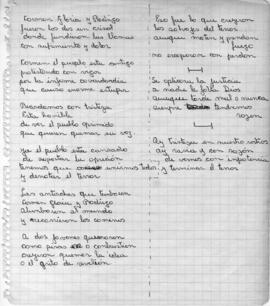 Carmen Gloria y Rodrigo
fueron los dos un crisol
donde fundieron las llamas
con sufrimiento y dolor
Carmen el pueblo este contigo
protestando con razón
por la infame
que causa enorme estupor
Recordamos con tristeza
Esta horrible
de ver el pueblo quemado
que quieren quemar su voz.
ya el pueblo está cansado
de soportar la opresión
tenemos que unirnos todos
y derrotar el terror
Las antorchas que
Carmen Gloria y Rodrigo
Alumbraron al mundo
y recorrieron los caminos
A dos jovenes quemaron
como piras o combustion
creyeron quemar la idea
o el grito de
Eso fue lo que creyeron
los del terror
aunque maten y prendan
fuego
no escaparan con perdon
Se aplicara la justicia
a nadie le falla Dios
aunque tarde mil o nunca
aunque tendremos
razon
Ay tristeza en nuestro rostros
ay rabia y con razón
de vernos con impotencia
y terminar el terror